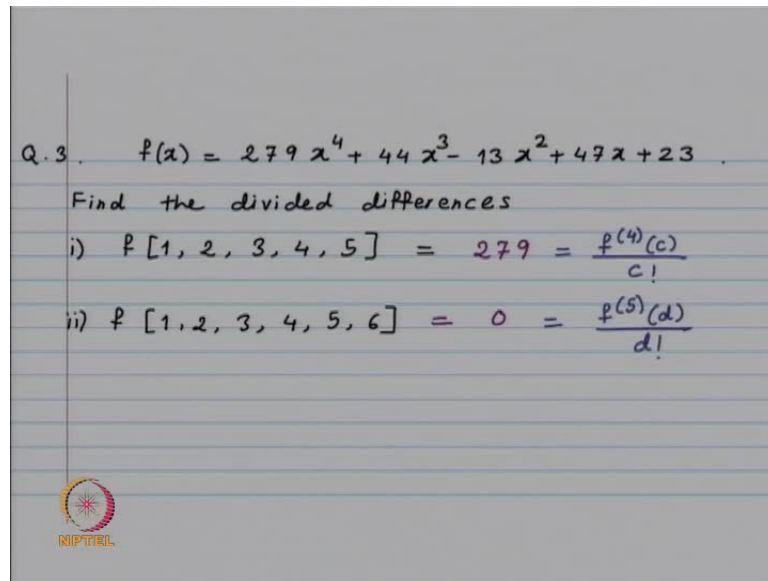 Q.3. f(x) = 279 x⁴ + 44 x³ - 13 x² + 47x + 23 .
Find the divided differences
i) f [1, 2, 3, 4, 5] = 279 = f⁽⁴⁾(c) / c!
ii) f [1, 2, 3, 4, 5, 6] = 0 = f⁽⁵⁾(d) / d!
NPTEL